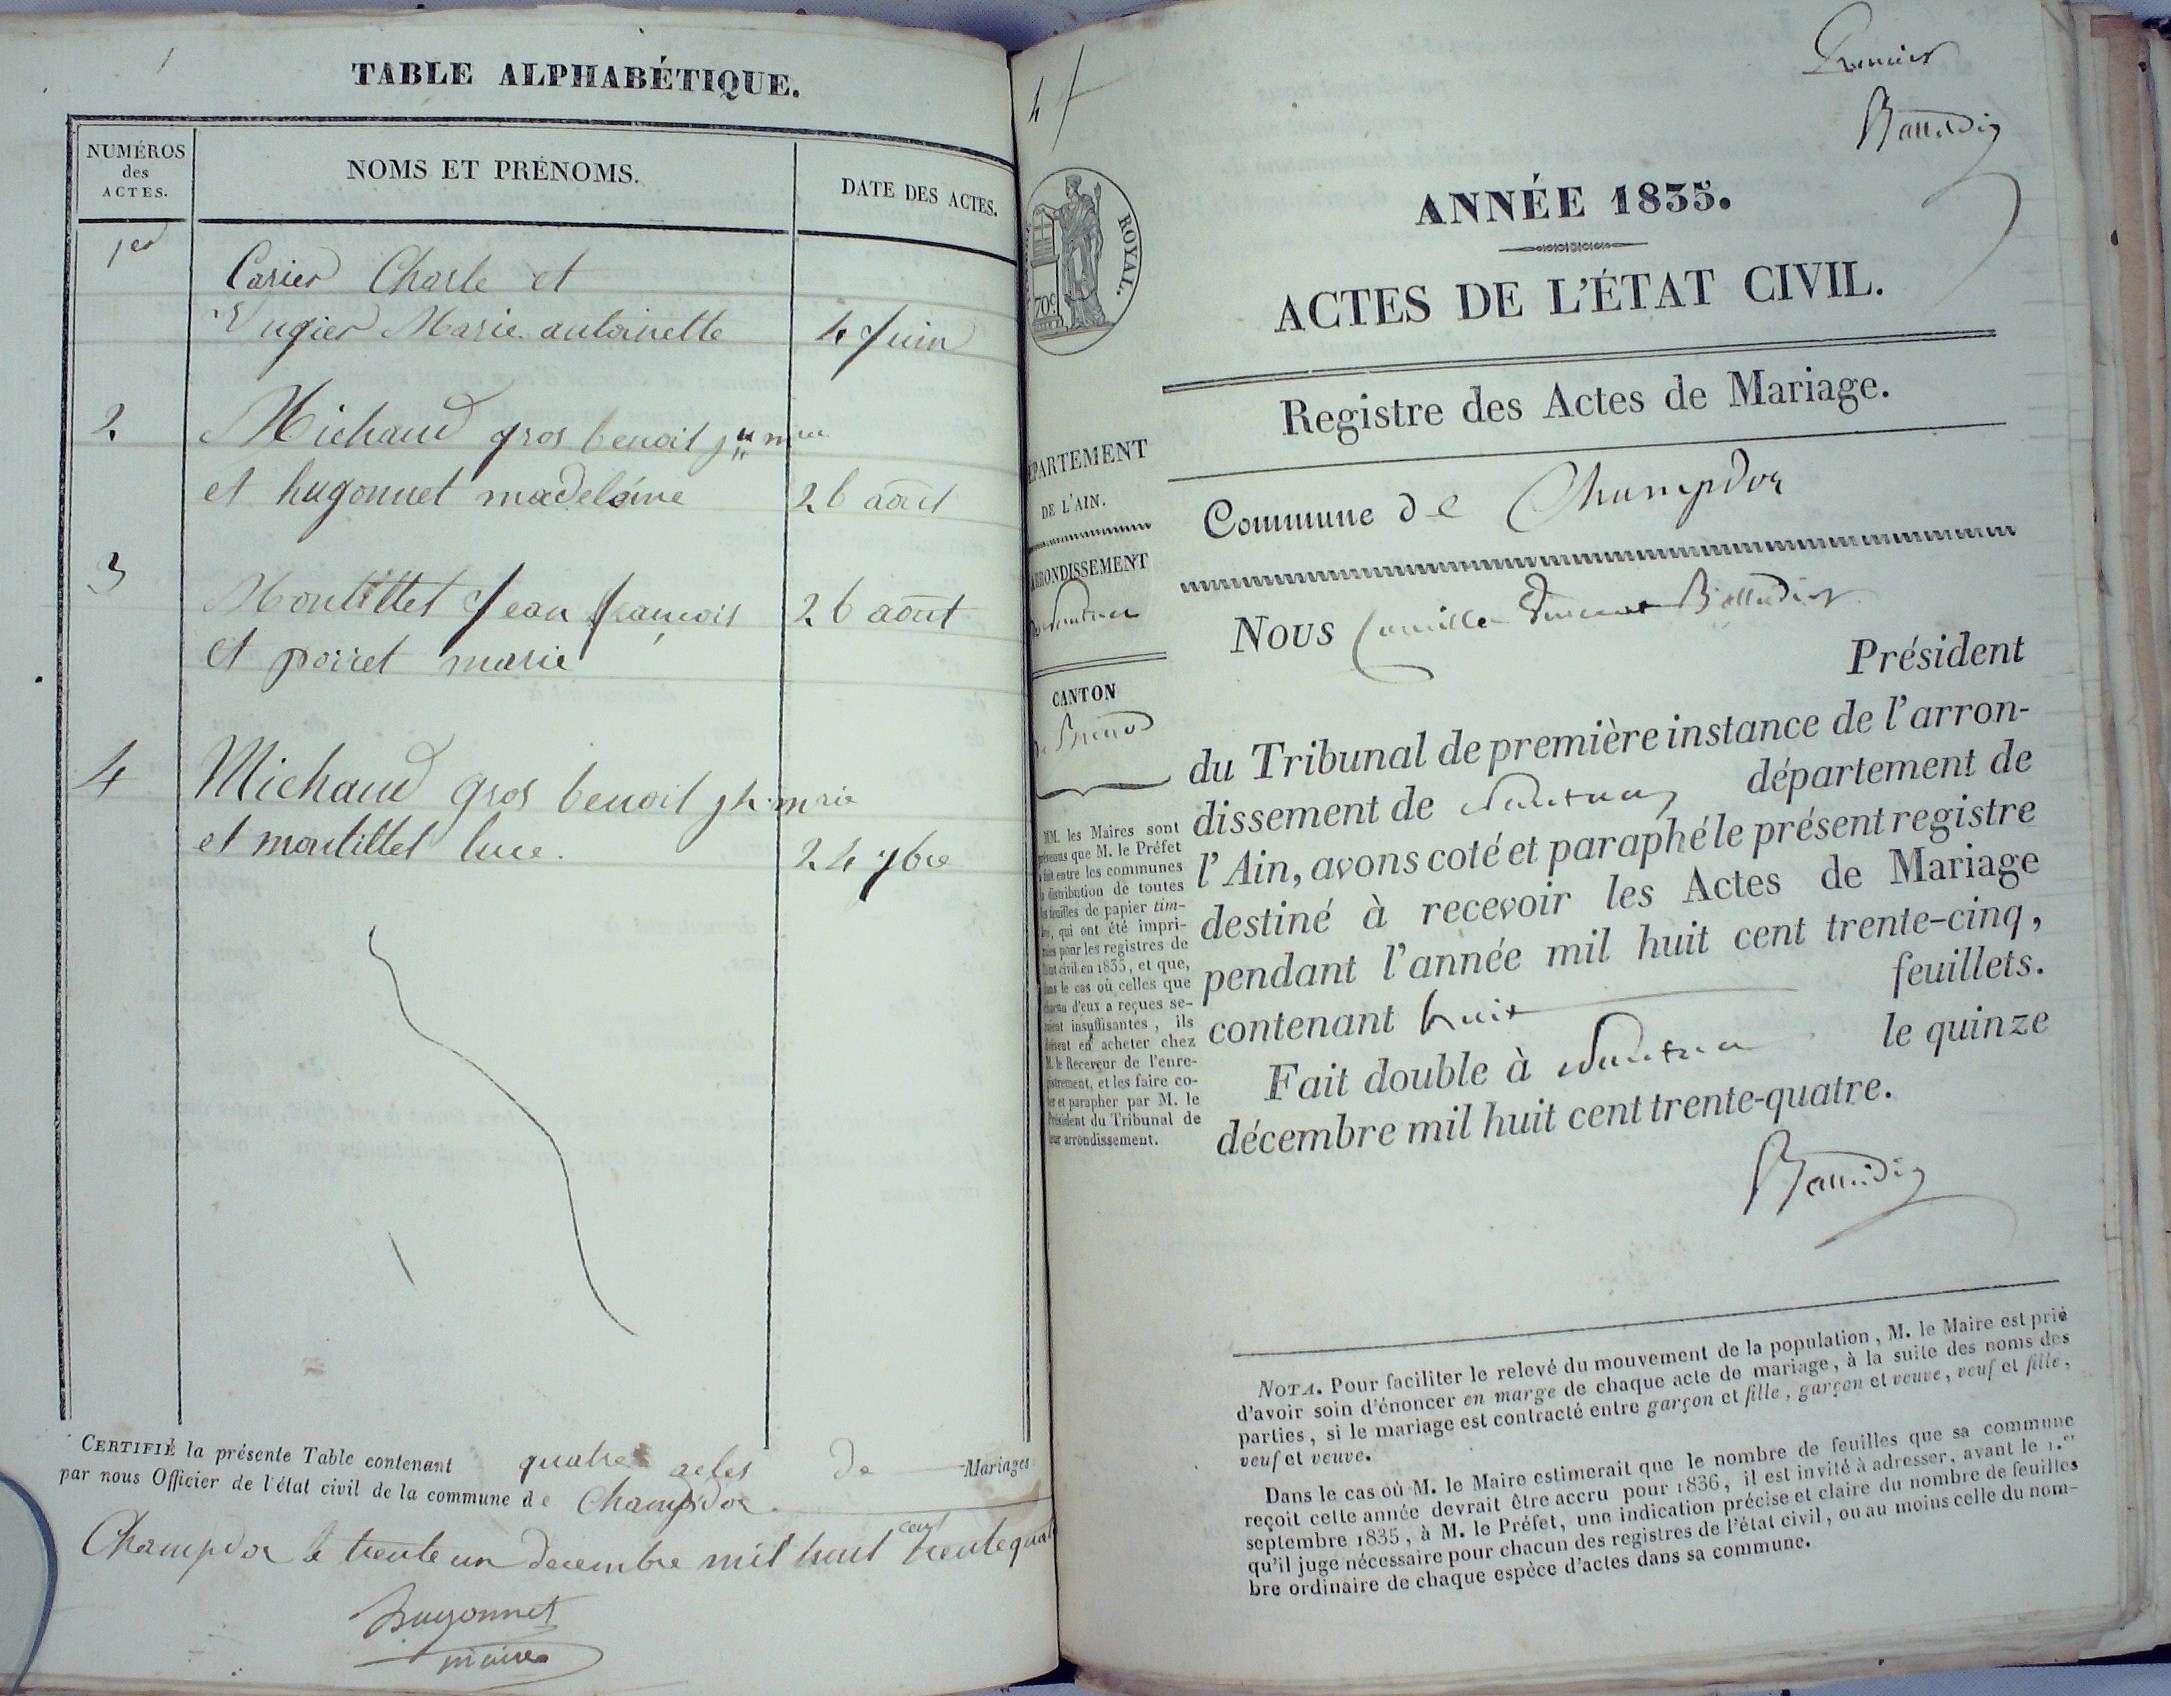 TABLE ALPHABÉTIQUE.
NUMÉROS
des
ACTES.
NOMS ET PRÉNOMS.
DATE DES ACTES.
1er
Carier Charle et
Marie antoinette
4 Juin
2
Michaud gros benoit
et hugonnet madelaine
26 août
3
Montillet Jean françois
26 août
et poiret marie
4
Michaud gros benoit
et montillet luce.
24 9bre
CERTIFIÉ la présente Table contenant quatre actes de Mariages
par nous Officier de l'état civil de la commune de Champdor
Champdor le trente un decembre mil huit cent trente quat
hugonnet
maire
4
Premier
ROYAL.
70c
ANNÉE 1835.
ACTES DE L'ÉTAT CIVIL.
Registre des Actes de Mariage.
Commune de Champdor
PARTEMENT
DE L'AIN.
RRONDISSEMENT
Nantua
CANTON
de Brénod
MM. les Maires sont
que M. le Préfet
fait entre les communes
la distribution de toutes
les feuilles de papier tim-
qui ont été impri-
mées pour les registres de
civil en 1835, et que,
dans le cas où celles que
chacun d'eux a reçues se-
insuffisantes, ils
en acheter chez
M. le Receveur de l'enre-
gistrement, et les faire co-
ter et parapher par M. le
Président du Tribunal de
leur arrondissement.
Nous Camille Vincent
Président
du Tribunal de première instance de l'arron-
dissement de Nantua département de
l'Ain, avons coté et paraphé le présent registre
destiné à recevoir les Actes de Mariage
pendant l'année mil huit cent trente-cinq,
contenant huit feuillets.
Fait double à Nantua le quinze
décembre mil huit cent trente-quatre.
NOTA. Pour faciliter le relevé du mouvement de la population, M. le Maire est prié
d'avoir soin d'énoncer en marge de chaque acte de mariage, à la suite des noms des
parties, si le mariage est contracté entre garçon et fille, garçon et veuve, veuf et fille,
veuf et veuve.
Dans le cas où M. le Maire estimerait que le nombre de feuilles que sa commune
reçoit cette année devrait être accru pour 1836, il est invité à adresser, avant le 1.er
septembre 1835, à M. le Préfet, une indication précise et claire du nombre de feuilles
qu'il juge nécessaire pour chacun des registres de l'état civil, ou au moins celle du nom-
bre ordinaire de chaque espèce d'actes dans sa commune.